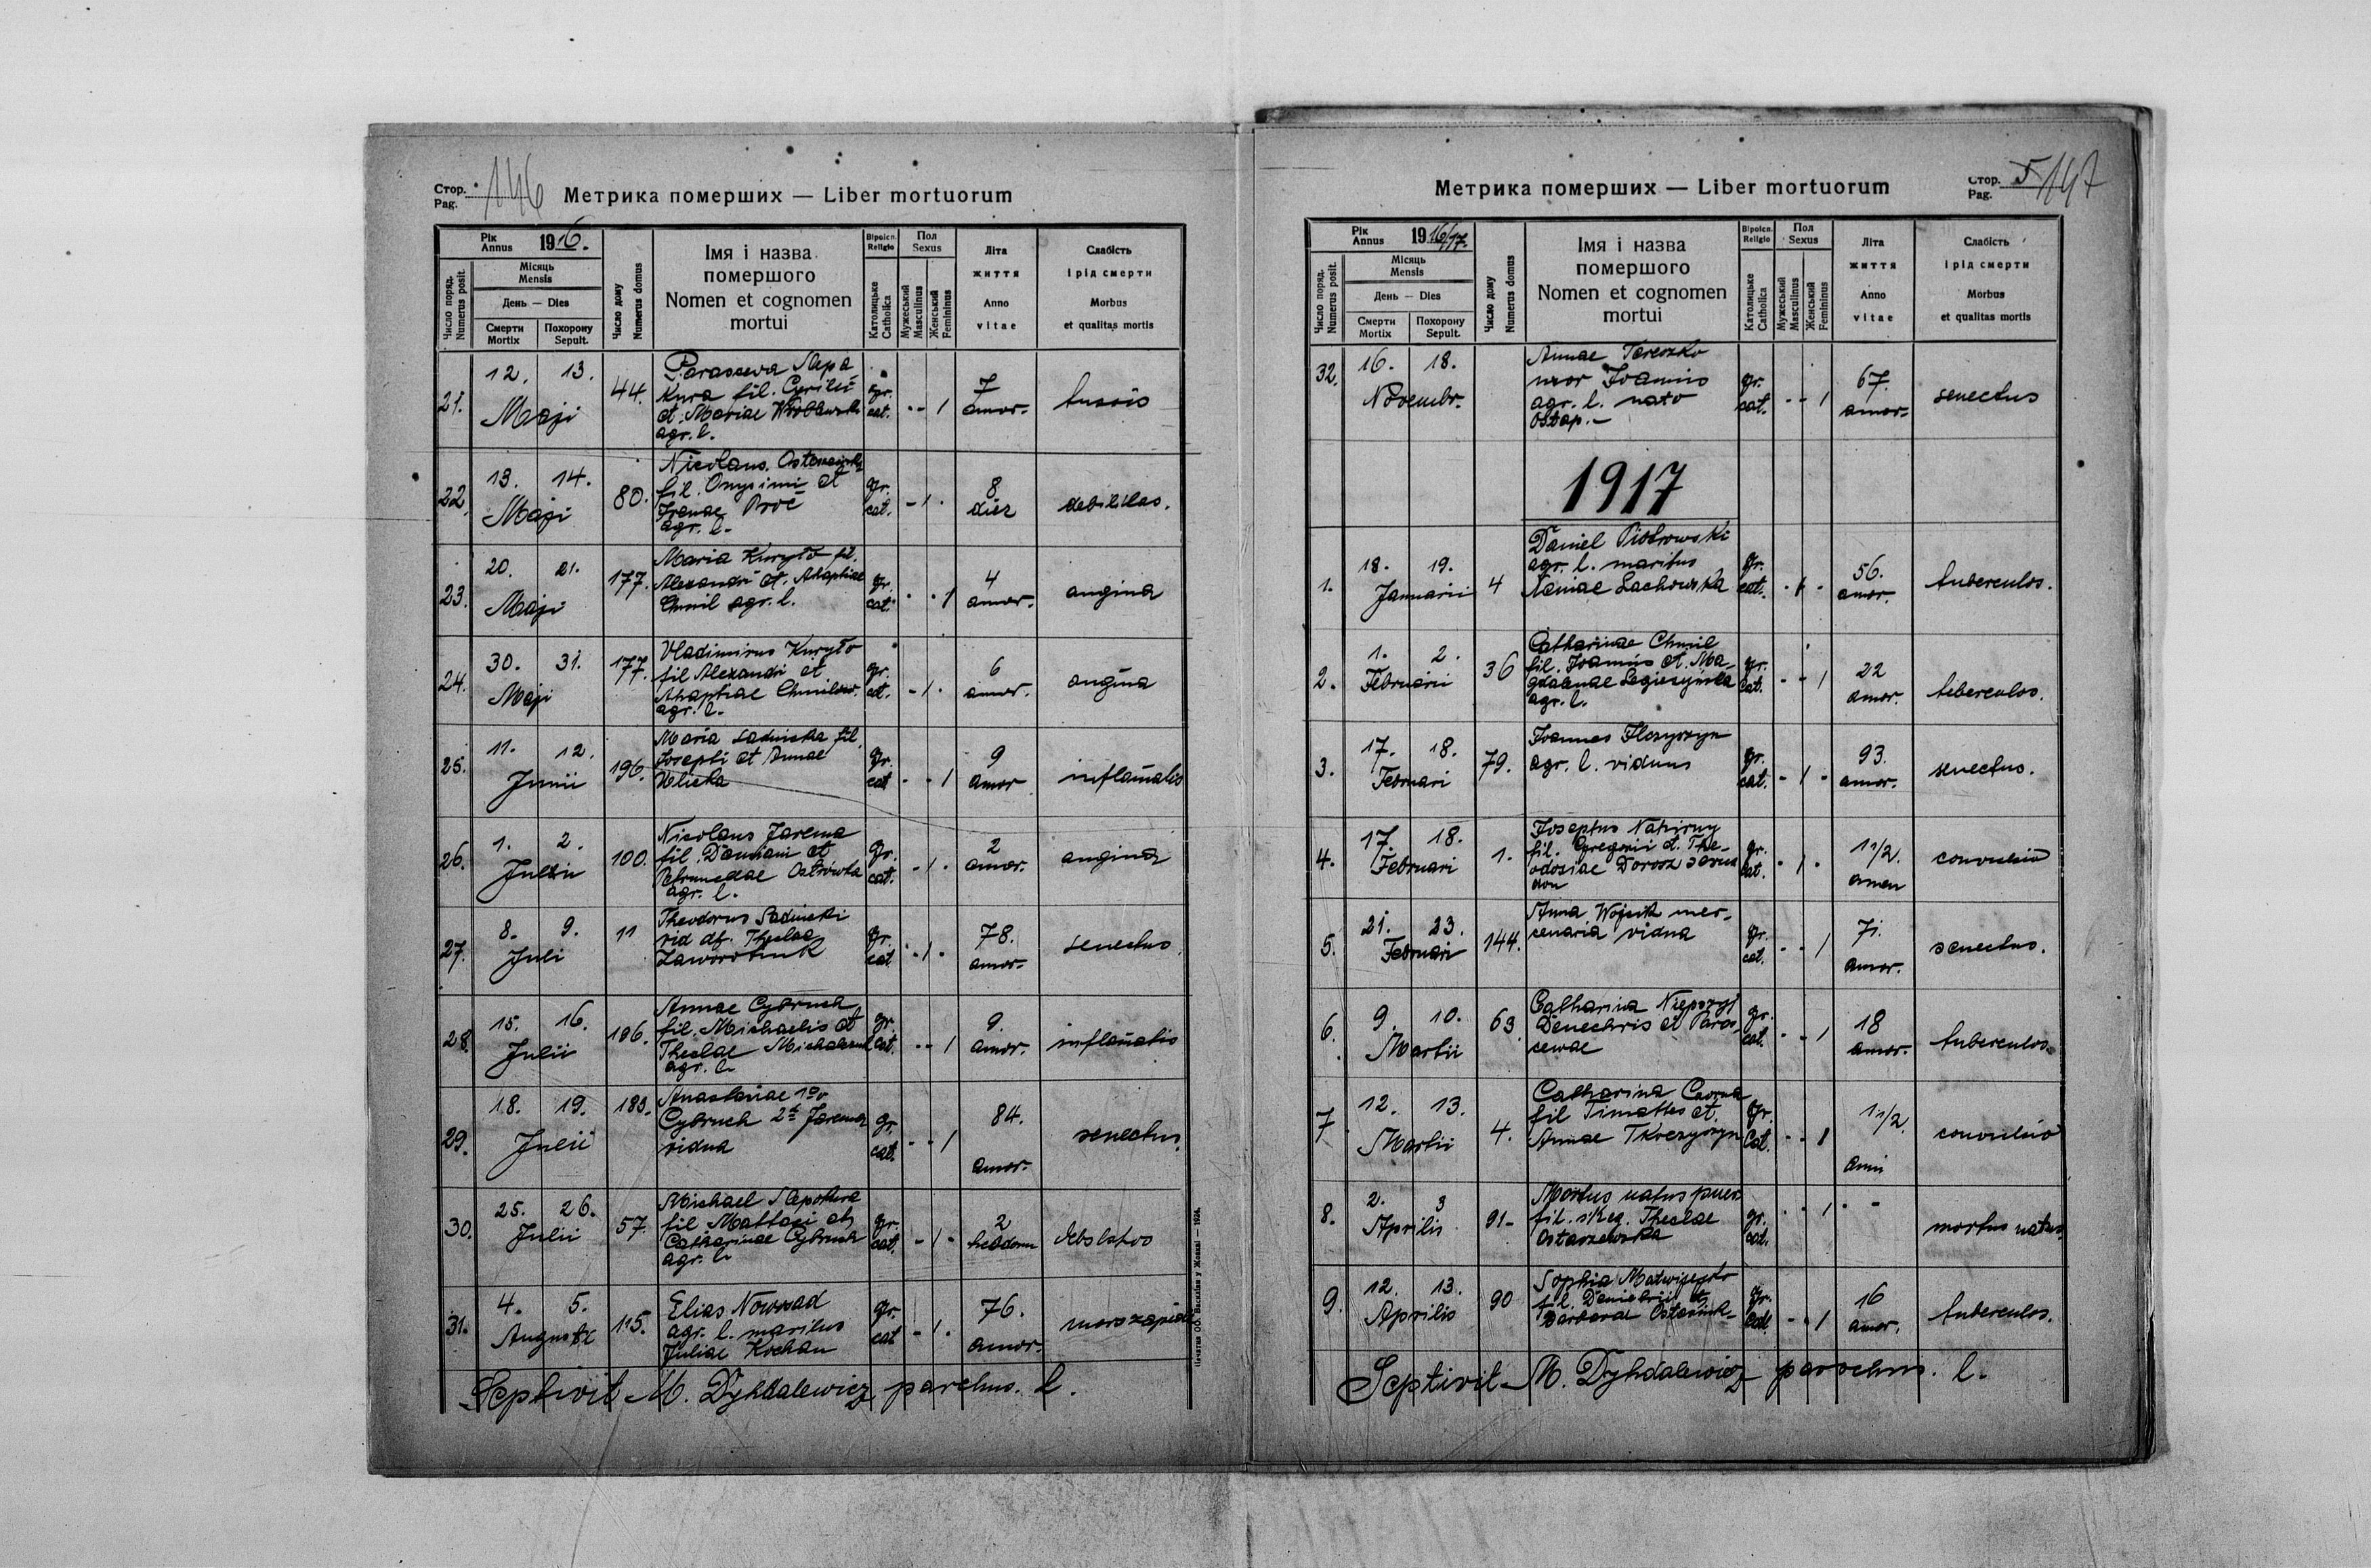 Стор.
Pag.
146
Метрика померших — Liber mortuorum
Рік
Annus
1916.
Число поряд.
Numerus posit.
Місяць
Mensis
День — Dies
Смерти
Mortix
Похорону
Sepult.
Число дому
Numerus domus
Імя і назва
помершого
Nomen et cognomen
mortui
Віроісп.
Religio
Католицьке
Catholica
Пол
Sexus
Мужеський
Masculinus
Женський
Femininus
Літа
життя
Anno
vitae
Слабість
і рід смерти
Morbus
et qualitas mortis
21. 12. 13. Maji 44.
Parasceva Slepa
kura fil. Cyrilli
et Mariae
agr. l.
gr. cat. 1 7 annor. tussis
22. 13. 14. Maji 80.
Nicolaus
fil. Onysimi et
Irenae Proć
agr. l.
gr. cat. 1 8 dies debilitas.
23. 20. 21. Maji 177.
Maria Kuryło fil.
Alexandri et Ahaphiae
Chmil agr. l.
gr. cat. 1 4 annor. angina
24. 30. 31. Maji 177.
Vladimirus Kuryło
fil Alexandri et
Ahaphiae
agr. l.
gr. cat. 1 6 annor. angina
25. 11. 12. Junii 196.
Maria Sadinska fil.
Josephi et Annae
gr. cat 1 9 annor inflamatis
26. 1. 2. 100.
Nicolaus Jarema
fil. Damiani et
Ostrowka
agr. l.
gr. cat. 1 2 annor. angina
27. 8. 9. Juli 11
Theodorus Sadinski
vid df. Theclae
Zaworotnuk
gr. cat 1 78. annor. senectus.
28. 15. 16. Julii 196.
Annae Cybruch
fil. Michaelis et
Theclae
agr. l.
gr. cat. 1 9. annor. inflamatis
29. 18. 19. Julii 183.
Anastasiae 1º v
Cybruch 2º Jarema
vidua
gr. cat. 1 84. annor. senectus.
30. 25. 26. Julii 57.
Michael Slepokura
fil Matthaei et
Catharinae Cybruch
agr. l.
gr. cat. 1 2
31. 4. 5. 115.
Elias Nowosad
agr. l. maritus
Juliae Kochan
gr. cat 1 76. annor.
Septivit M. Dyhdalewicz parchus. l.
Стор.
Pag.
5/147
Метрика померших — Liber mortuorum
Рік
Annus
1916/17.
Число поряд.
Numerus posit.
Місяць
Mensis
День — Dies
Смерти
Mortix
Похорону
Sepult.
Число дому
Numerus domus
Імя і назва
помершого
Nomen et cognomen
mortui
Віроісп.
Religio
Католицьке
Catholica
Пол
Sexus
Мужеський
Masculinus
Женський
Femininus
Літа
життя
Anno
vitae
Слабість
і рід смерти
Morbus
et qualitas mortis
32. 16. 18. Novembr.
Annae Tereszko
uxor Joannis
agr. l. nato
Ostap.
gr. cat. 1 67. annor. senectus
1917
1. 18. 19. Januarii 4
Daniel Piotrowski
agr. l. maritus
Lachowska
gr. cat. 1 56. annor. tuberculos.
2. 1. 2. Februarii 36
Catharinae Chmil
fil. Joannis et Ma-
gdalenae
agr. l.
gr. cat. 1 22 annor. teberculos.
3. 17. 18. Februari 79.
Joannes
agr. l. viduus
gr. cat. 1 93. annor. senectus.
4. 17. 18. Februari 1.
Josephus Nahirny
fil. Gregorii et The-
odosiae Dorosz
gr. cat. 1 1 1/2. convulsio
5. 21. 23. Februari 144.
Anna Wojcik mer-
cenaria vidua
gr. cat. 1 71. annor. senectus.
6. 9. 10. Martii 63.
Catharina
et Paras-
cewae
gr. cat. 1 18 annor. tuberculos.
7 12. 13. Martii 4.
Catharina Czorna
fil et
Annae
gr. Cat. 1 1 1/2. anni convulsio
8. 2. 3 Aprilis 91-
Mortus natus puer
fil. Theclae
Ostaszewska
gr. cat. 1 - mortus natus.
9. 12. 13. Aprilis 90
Sophia
fil. et
Barbara
gr. Cat. 1 16 annor. tuberculos.
Septivit M. Dyhdalewicz parochus. l.